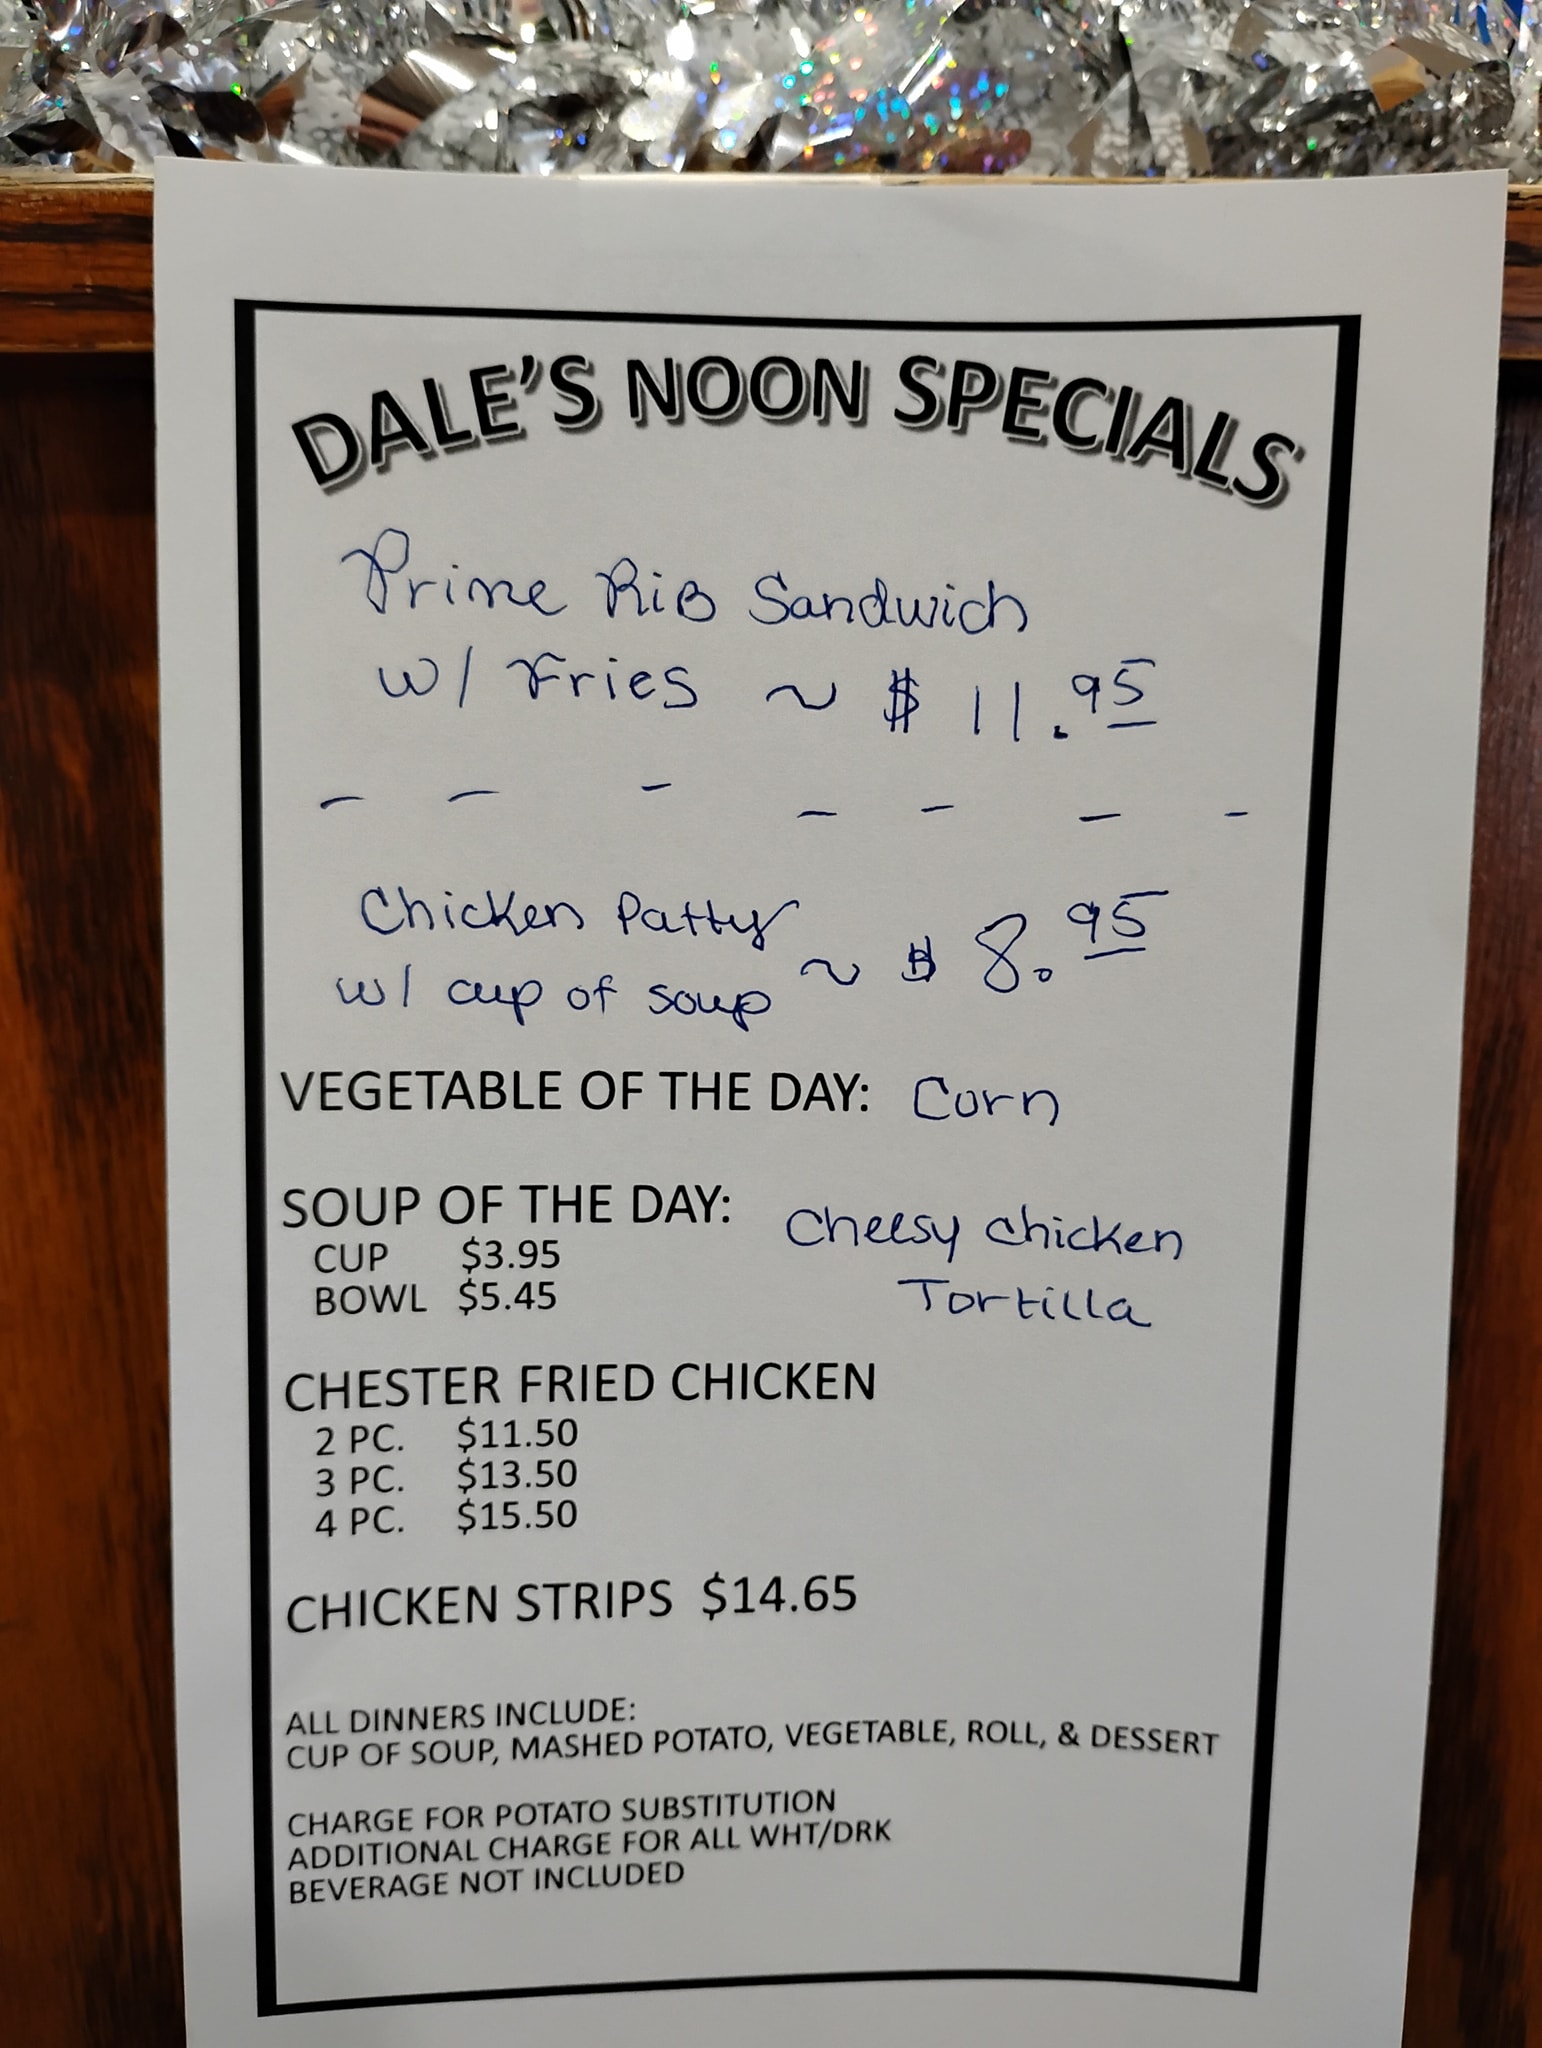 DALE'S NOON SPECIALS
Prime Rib Sandwich
w/ Fries ~ $11.95
- - - - - - -
Chicken Patty
w/ cup of soup ~ $8.95
VEGETABLE OF THE DAY: Corn
SOUP OF THE DAY: Cheesy Chicken
Tortilla
CUP $3.95
BOWL $5.45
CHESTER FRIED CHICKEN
2 PC. $11.50
3 PC. $13.50
4 PC. $15.50
CHICKEN STRIPS $14.65
ALL DINNERS INCLUDE:
CUP OF SOUP, MASHED POTATO, VEGETABLE, ROLL, & DESSERT
CHARGE FOR POTATO SUBSTITUTION
ADDITIONAL CHARGE FOR ALL WHT/DRK
BEVERAGE NOT INCLUDED